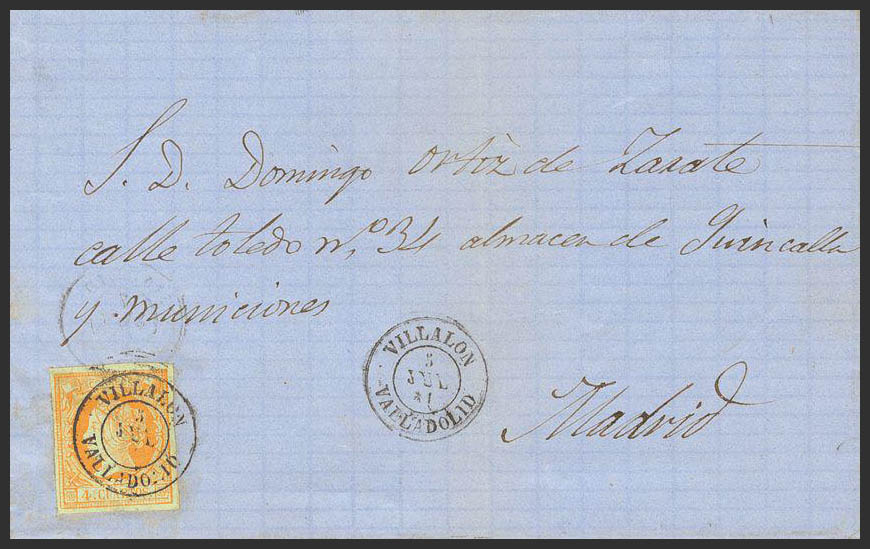 S. D. Domingo ortiz de Zarate
calle toledo nº 34 almacen de Quincalla
y municiones
Madrid
VILLALON
5
JUL
VALLADOLID
VILLALON
JUL
VALLADOLID
4 CUARTOS